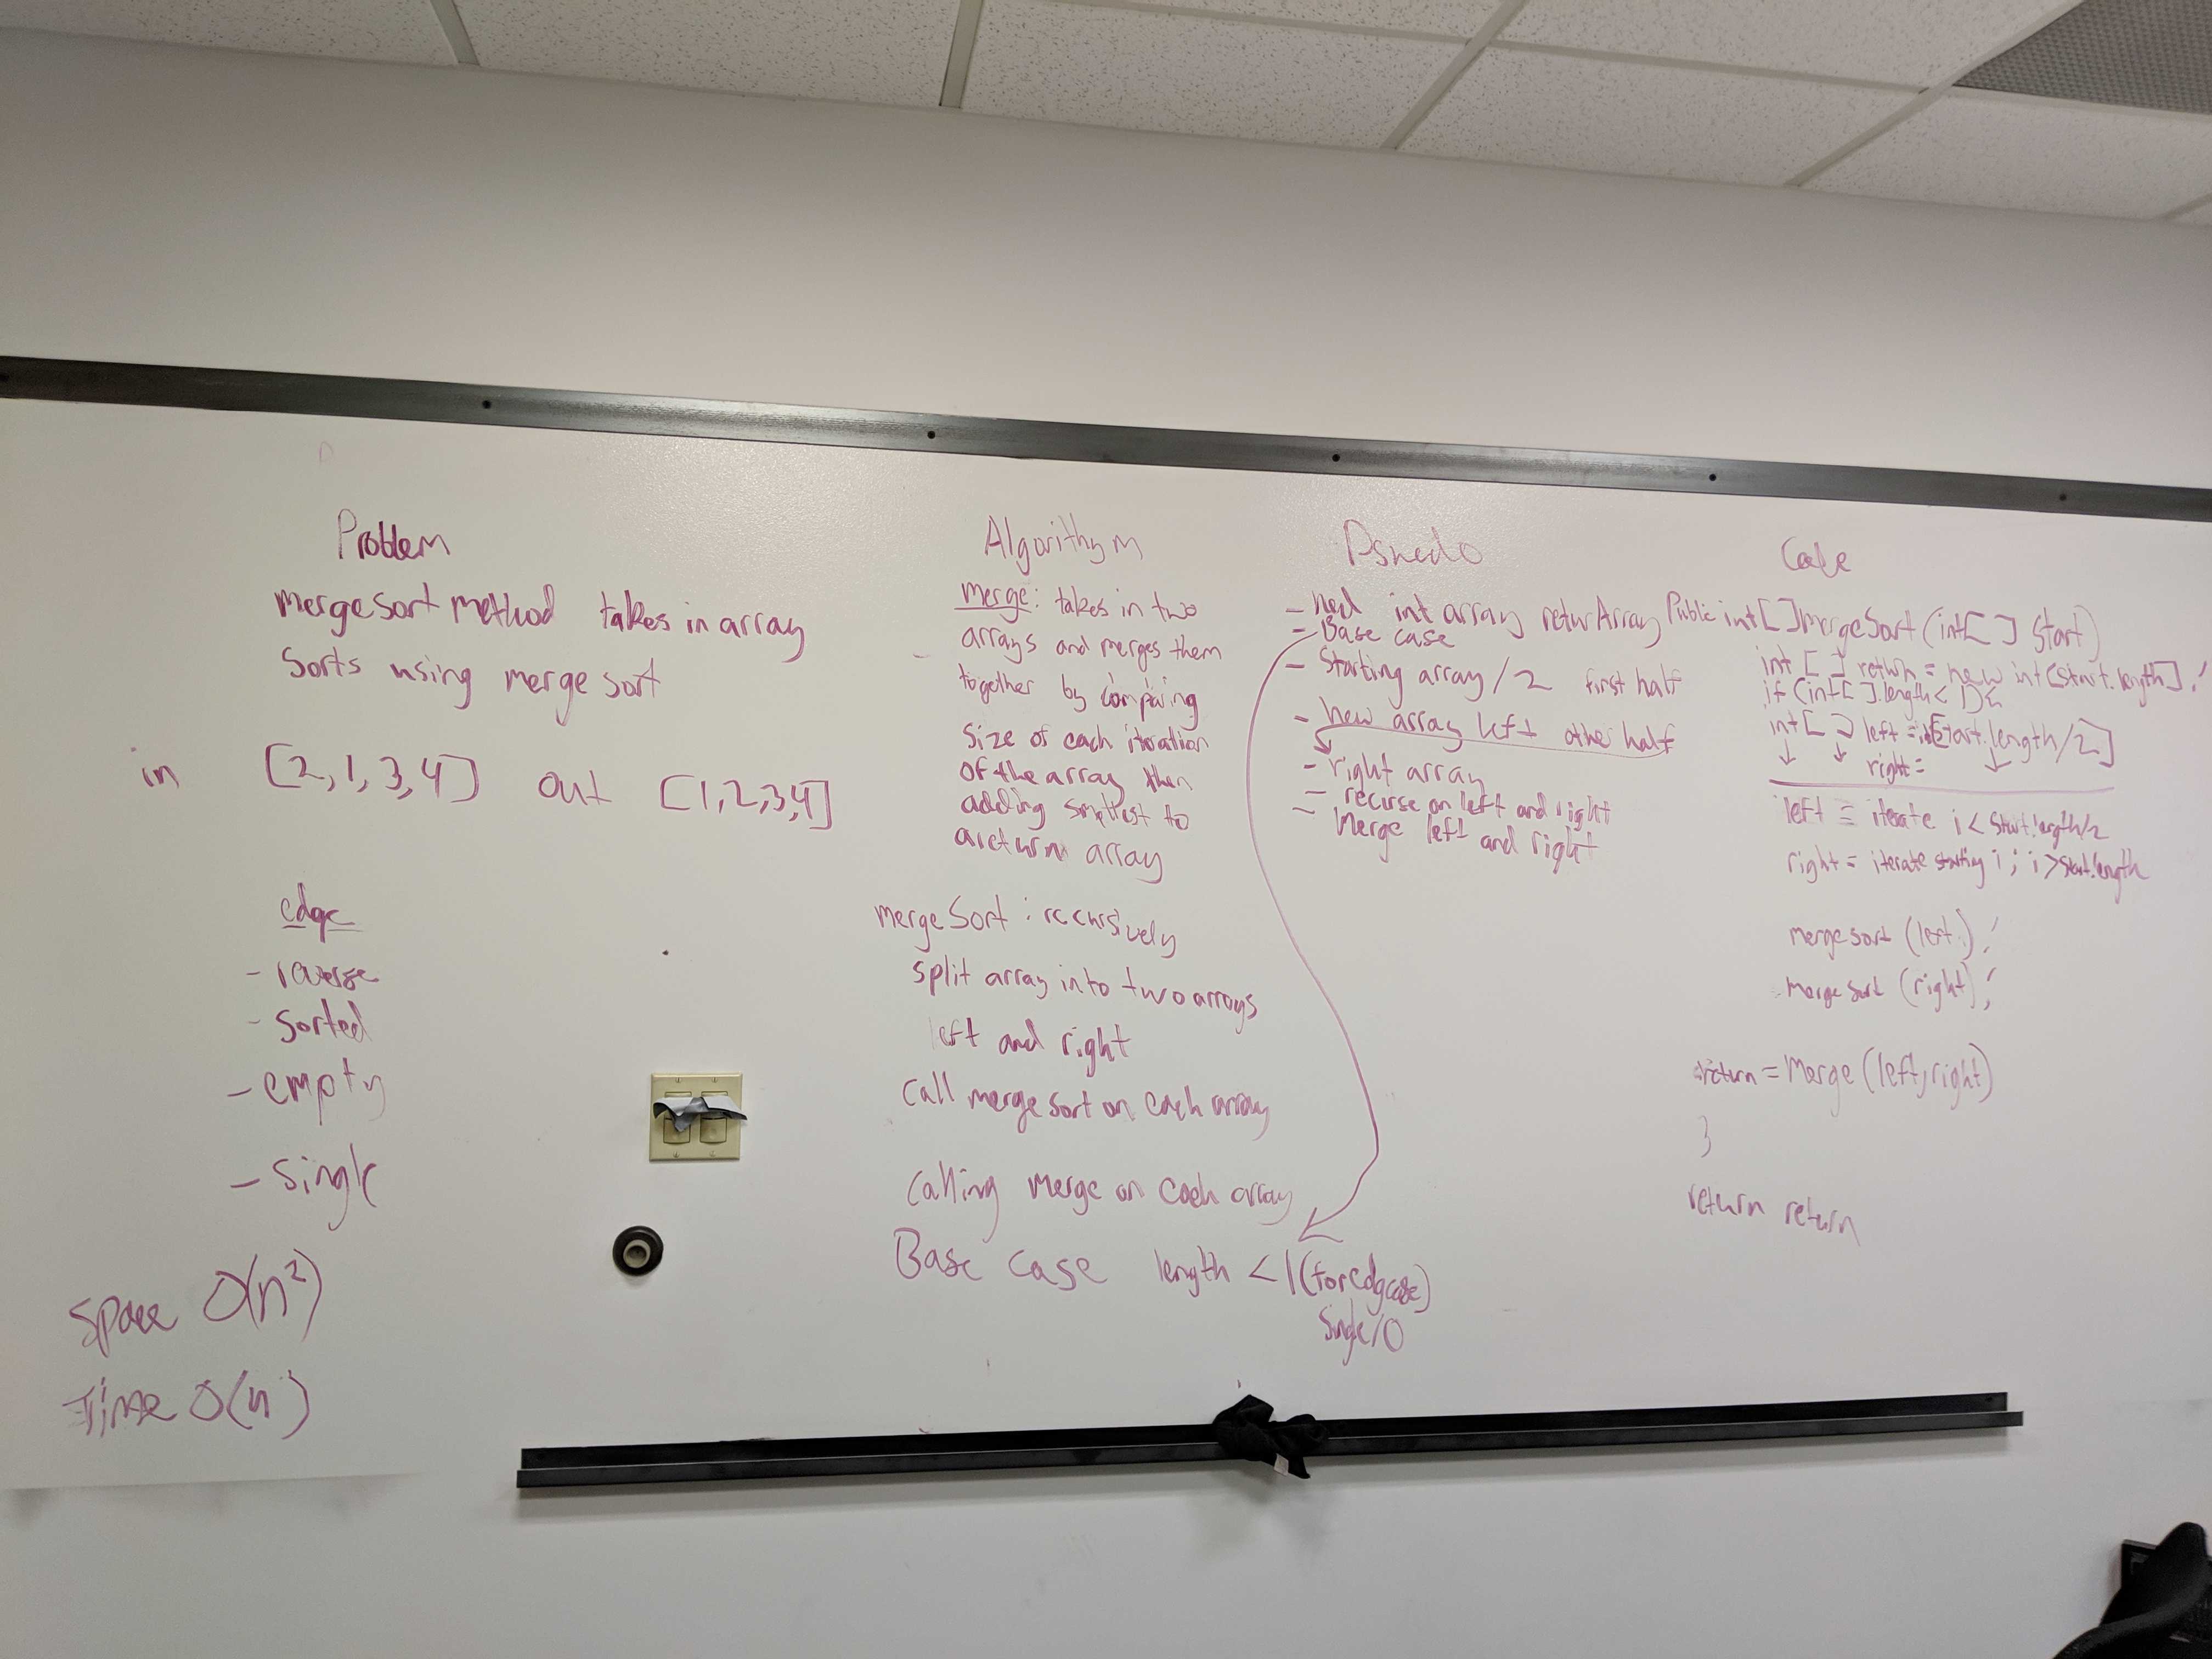 Problem
mergeSort method takes in array
Sorts using merge sort
in [2,1,3,4] out [1,2,3,4]
edge
- reverse
- Sorted
- empty
- Single
Space O(n²)
Time O(n)
Algorithym
merge: takes in two
arrays and merges them
together by comparing
Size of each iteration
of the array then
adding smallest to
array
mergeSort: recursively
split array into two arrays
left and right
Call merge sort on each array
Calling merge on each array
Base case length <1 (for edgcase)
Single/0
Psuedo
- int array returArray
- Base case
- Starting array/2 first half
- new array left other half
- right array
- recurse on left and right
- Merge left and right
Code
Public int[] mergeSort(int[] Start)
int[] return = new int[Start.length];
if (int[].length < 1){
int[] left = [Start.length/2]
right =
left = iterate i < Start.length/2
right = iterate starting i; i > Start.length
mergesort (left);
mergesort (right);
return = Merge (left, right)
}
return return